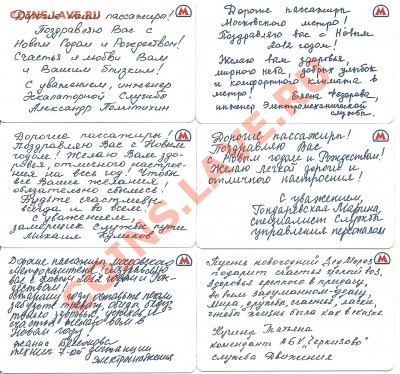 COINS.LAVE.RU
Дорогие наши пассажиры!
Поздравляю Вас с
Новым Годом и Рождеством!
Счастья и любви Вам
и Вашим близким!
С уважением, инженер
Эскалаторной Службы
Александр
Дорогие пассажиры
Московского метро!
Поздравляю Вас с Новым
2012 годом!
Желаю вам здоровья,
мирного неба, добрых улыбок
и комфортного климата в
метро!
Елена Федорова,
инженер Электромеханической
службы.
Дорогие пассажиры!
Поздравляю Вас с Новым
годом! Желаю Вам здо-
ровья, отличного настрое-
ния на весь год! Чтобы
все Ваши желания
обязательно сбылись!
Будьте счастливы
всегда и во всём!
С уважением,
Службы пути
Михаил Куликов
Дорогие пассажиры!
Поздравляю Вас
с Новым годом и Рождеством!
Желаю легкой дороги и
отличного настроения!
С уважением,
Марина,
специалист Службы
управления персоналом
Дорогие пассажиры Московского
Метрополитена, поздравляю
вас с Новым 2012 годом и Рож-
деством!
здоровья, успехов и
счастья
Новом году!
техник 7-ой дистанции
электроснабжения
Пусть новогодний Дед Мороз
подарит счастья целый воз,
здоровья крепкого в придачу,
во всем задуманном удачу,
мира, дружбы, счастья, ласки,
чтобы жизнь была как в сказке
Татьяна
комендант АБК "Черкизово"
служба Движения